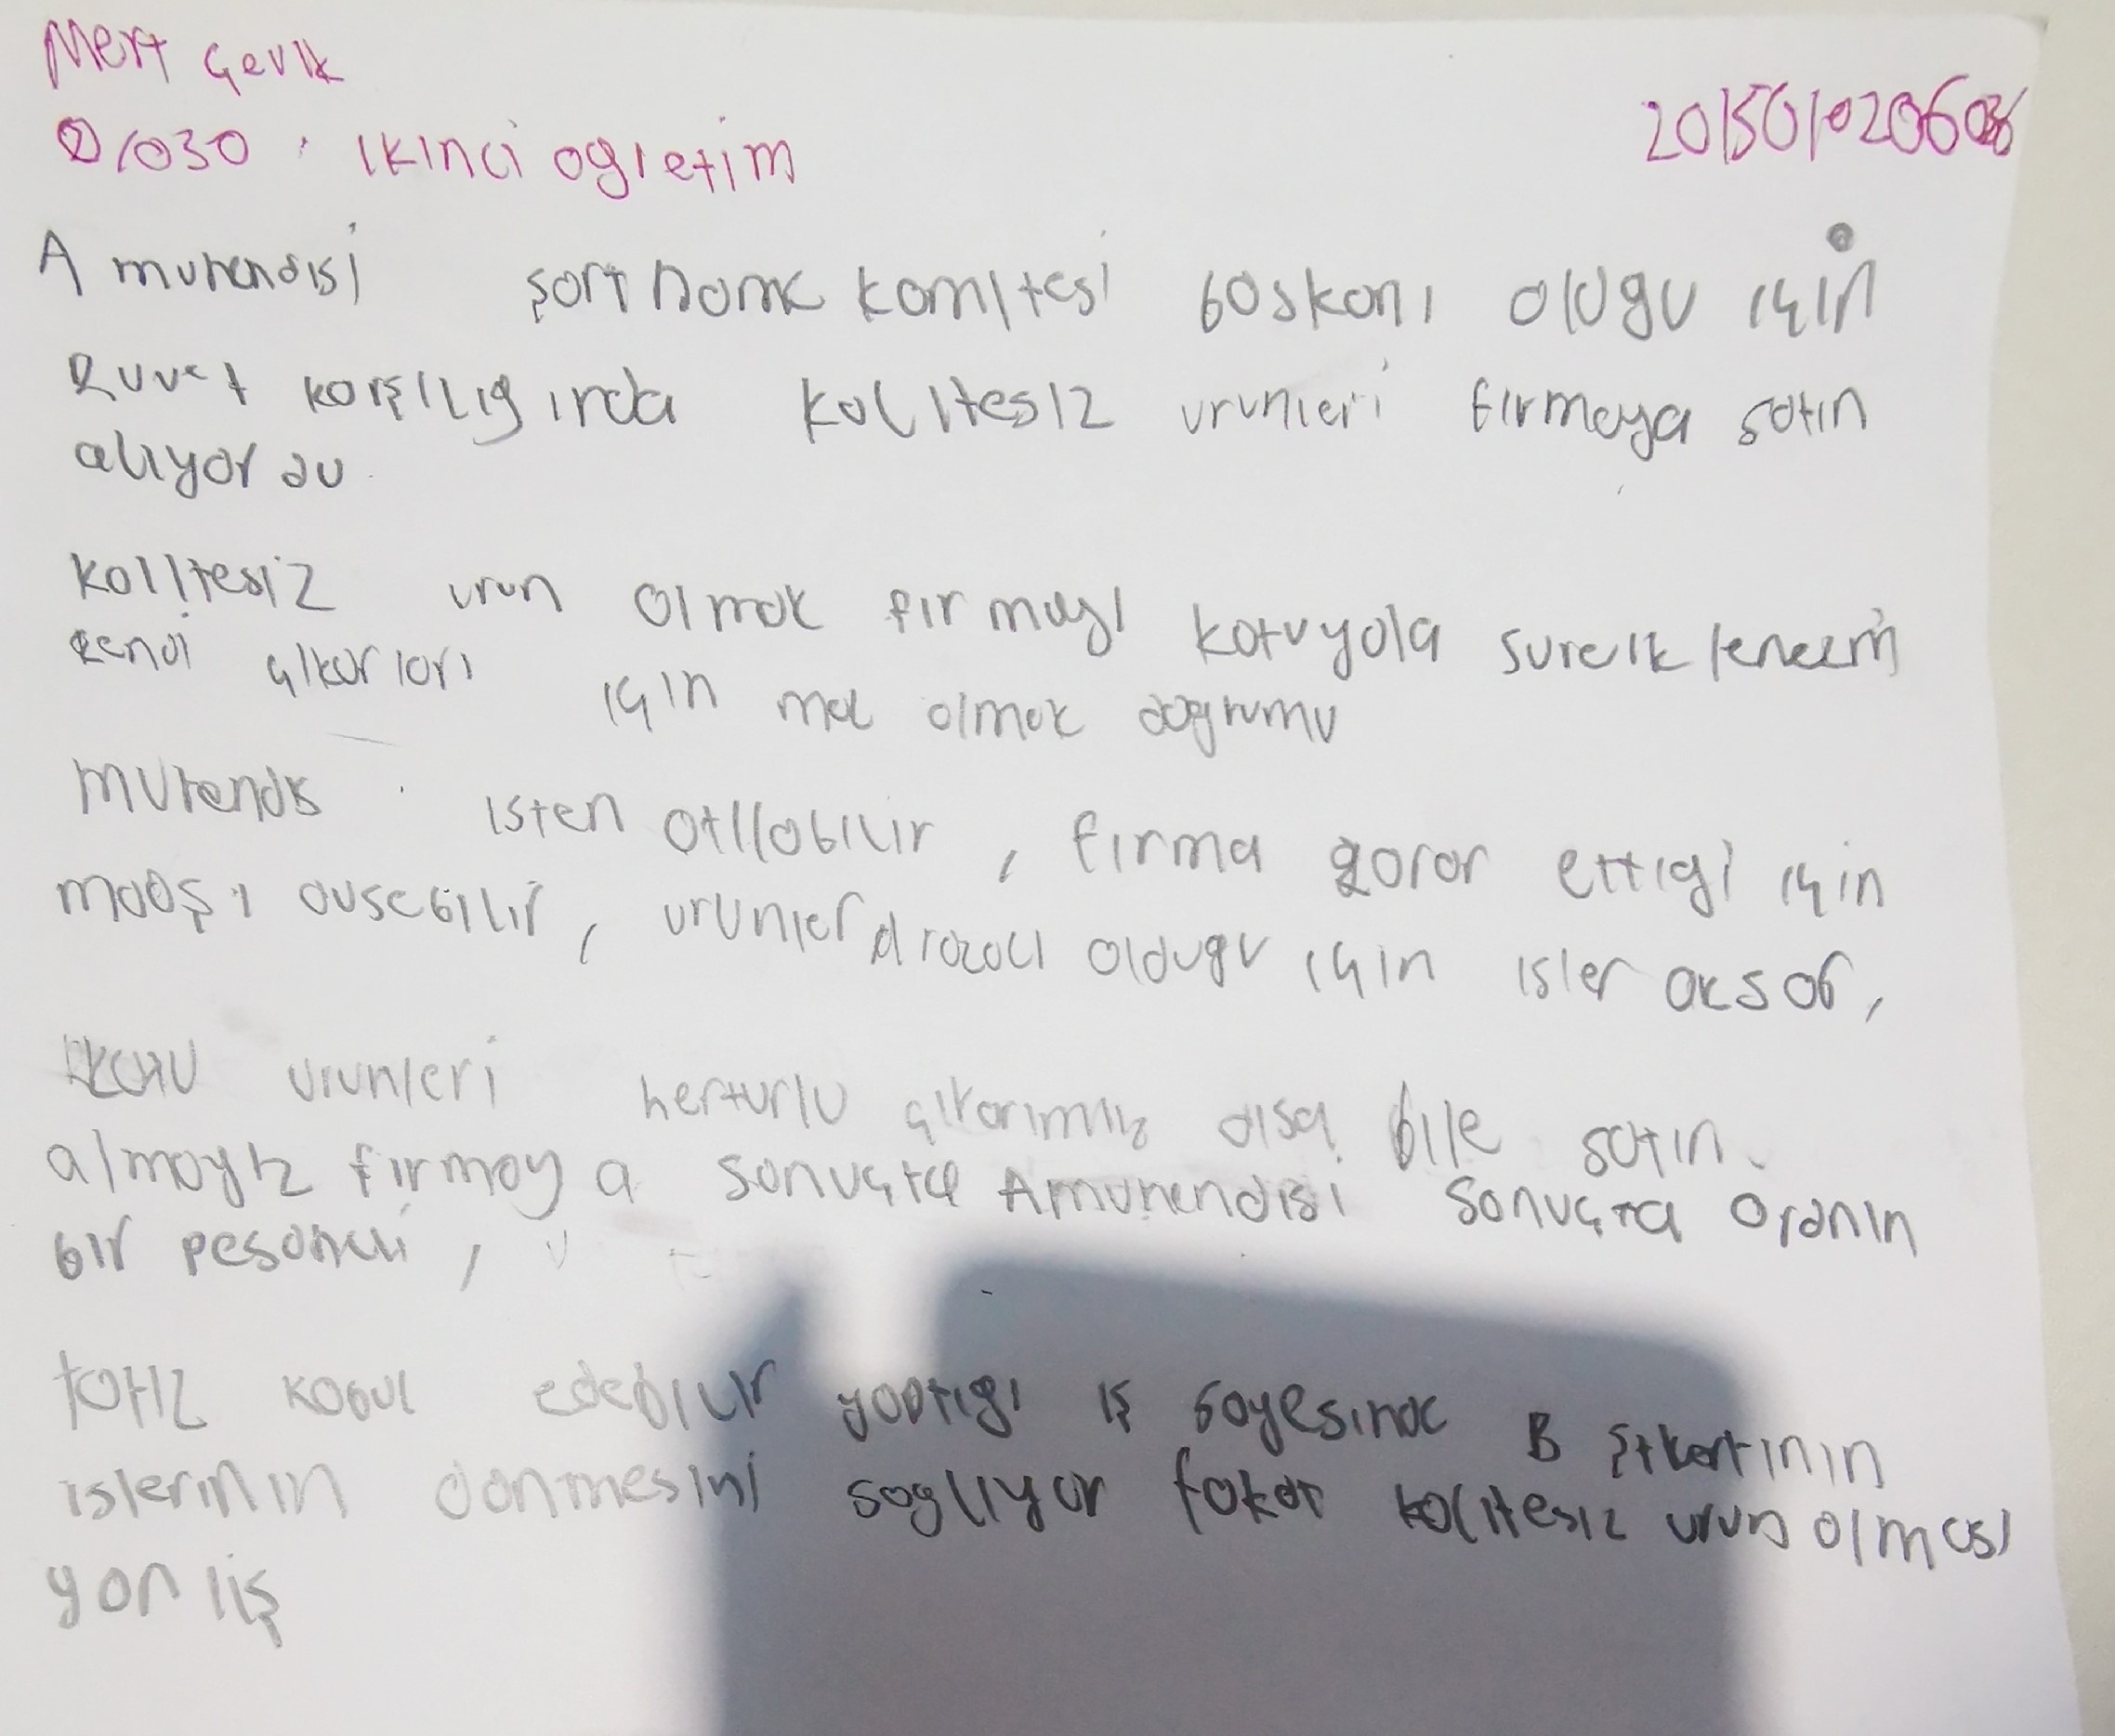 Mert Çevik
01030 ikinci ogretim
A muhendisi şartname komitesi baskanı olugu için
Ruvet karşılıgında kalitesiz urunleri firmaya satın
alıyordu
Kalitesiz urun almak firmayı kotuyola
kendi çıkarları için mal almak dogrumu
Muhendis isten atılabilir, firma zarar ettigi için
maaşı dusebilir, urunler arızalı oldugu için isler aksar,
urunleri herturlu çıkarımız olsa bile satın
almayız firmaya sonuçta A muhendisi sonuçta oranın
bir pesoneli,
kabul edebilir yaptıgı iş sayesinde B şirketinin
islerinin donmesini saglıyor fakat kalitesiz urun alması
yanlış